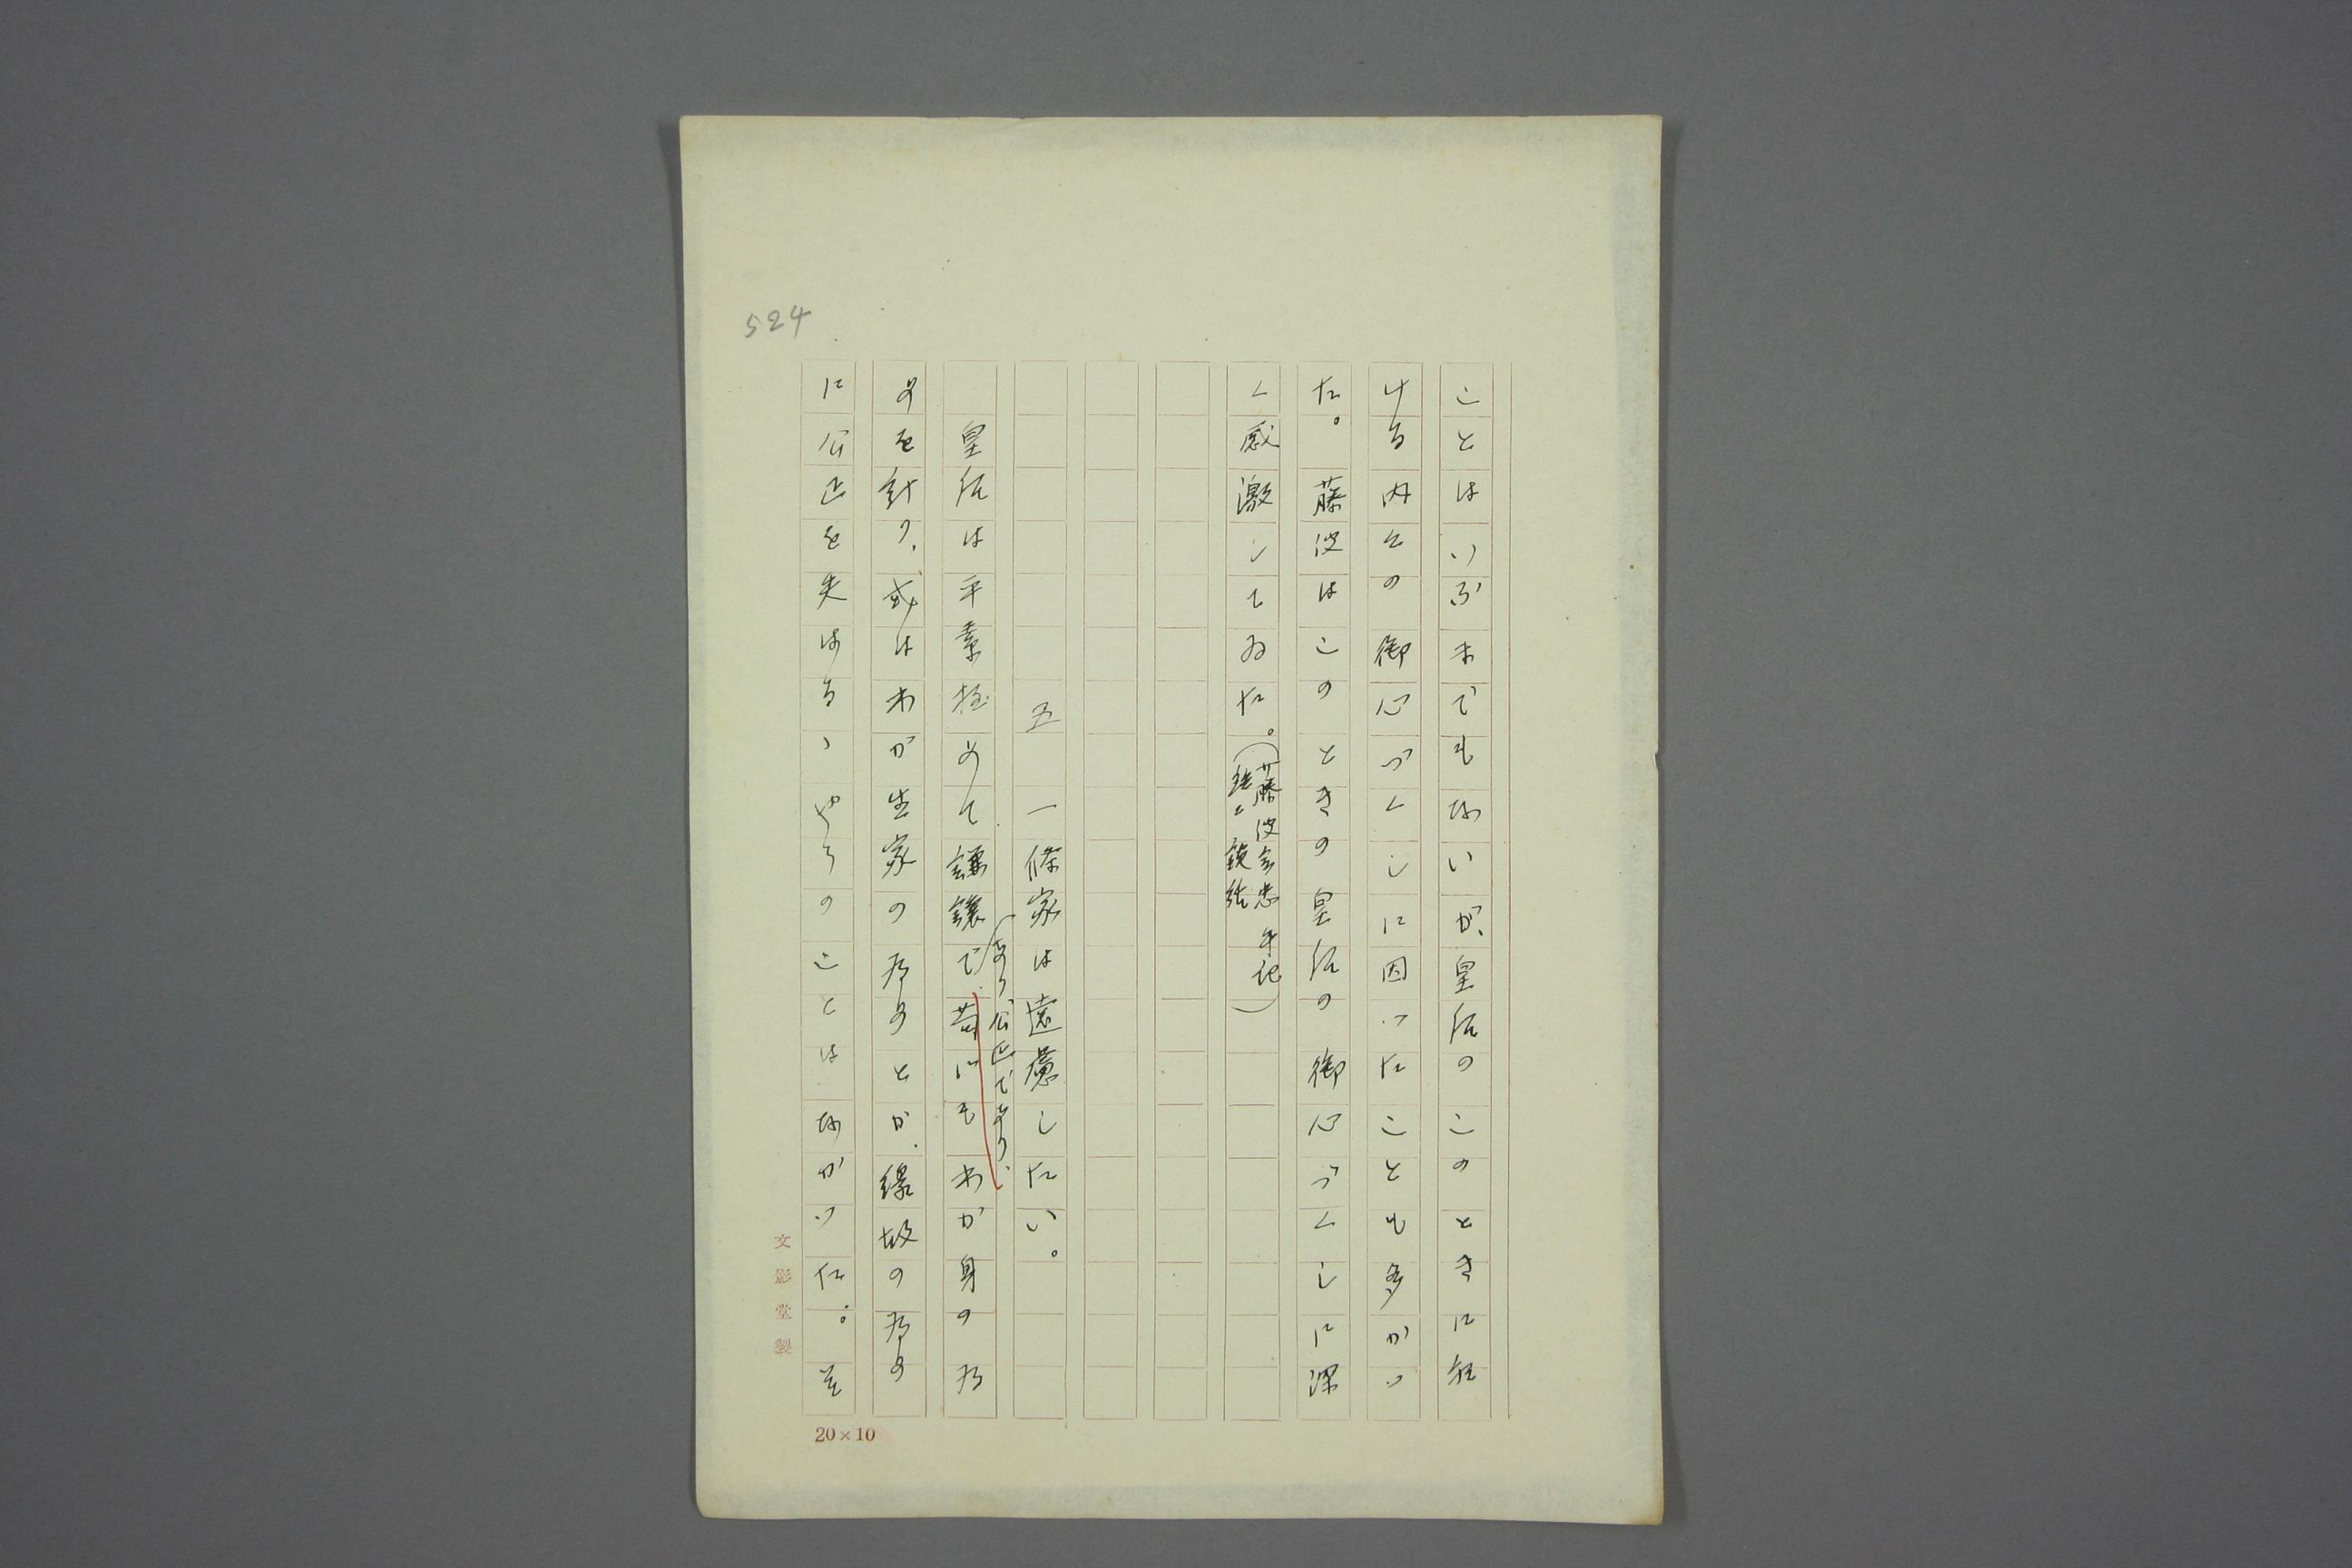 524
ことはいふまでもないが、皇后のこのときに於
ける内々の御心づくしに因つたことも多かつ
た。藤波はこのときの皇后の御心づくしに深
く感激してゐた。(藤波言忠手記
談話)
五 一條家は遠慮したい。
皇后は平素極めて謙讓で
あり、公正であり、
苟にもわが身の為
めを計り、或はわが生家の為めとか、縁故の為め
に公正を失はるゝやうのことはなかつた。並
文影堂製
20×10